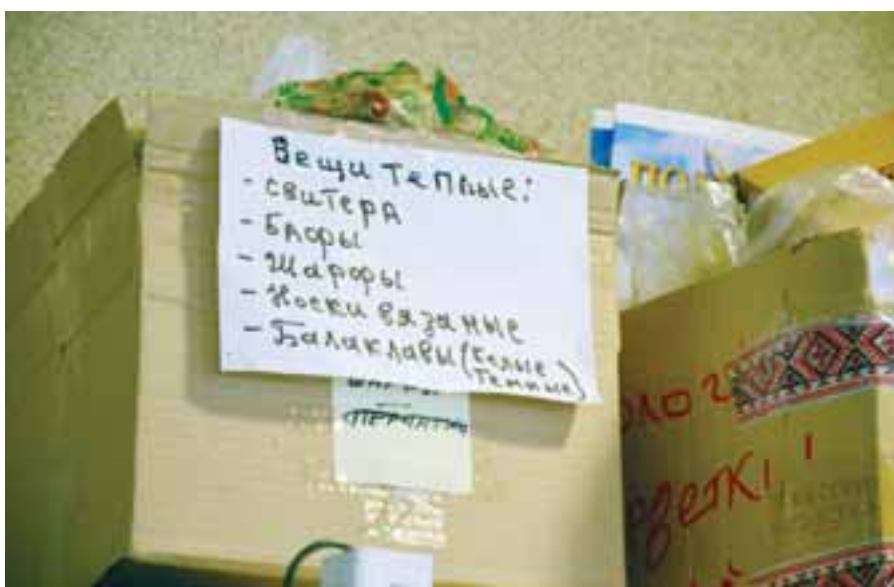 Вещи теплые:
- свитера
- Бафы
- Шарфы
- Носки вязаные
- Балаклавы (белые
темные)
перчатки